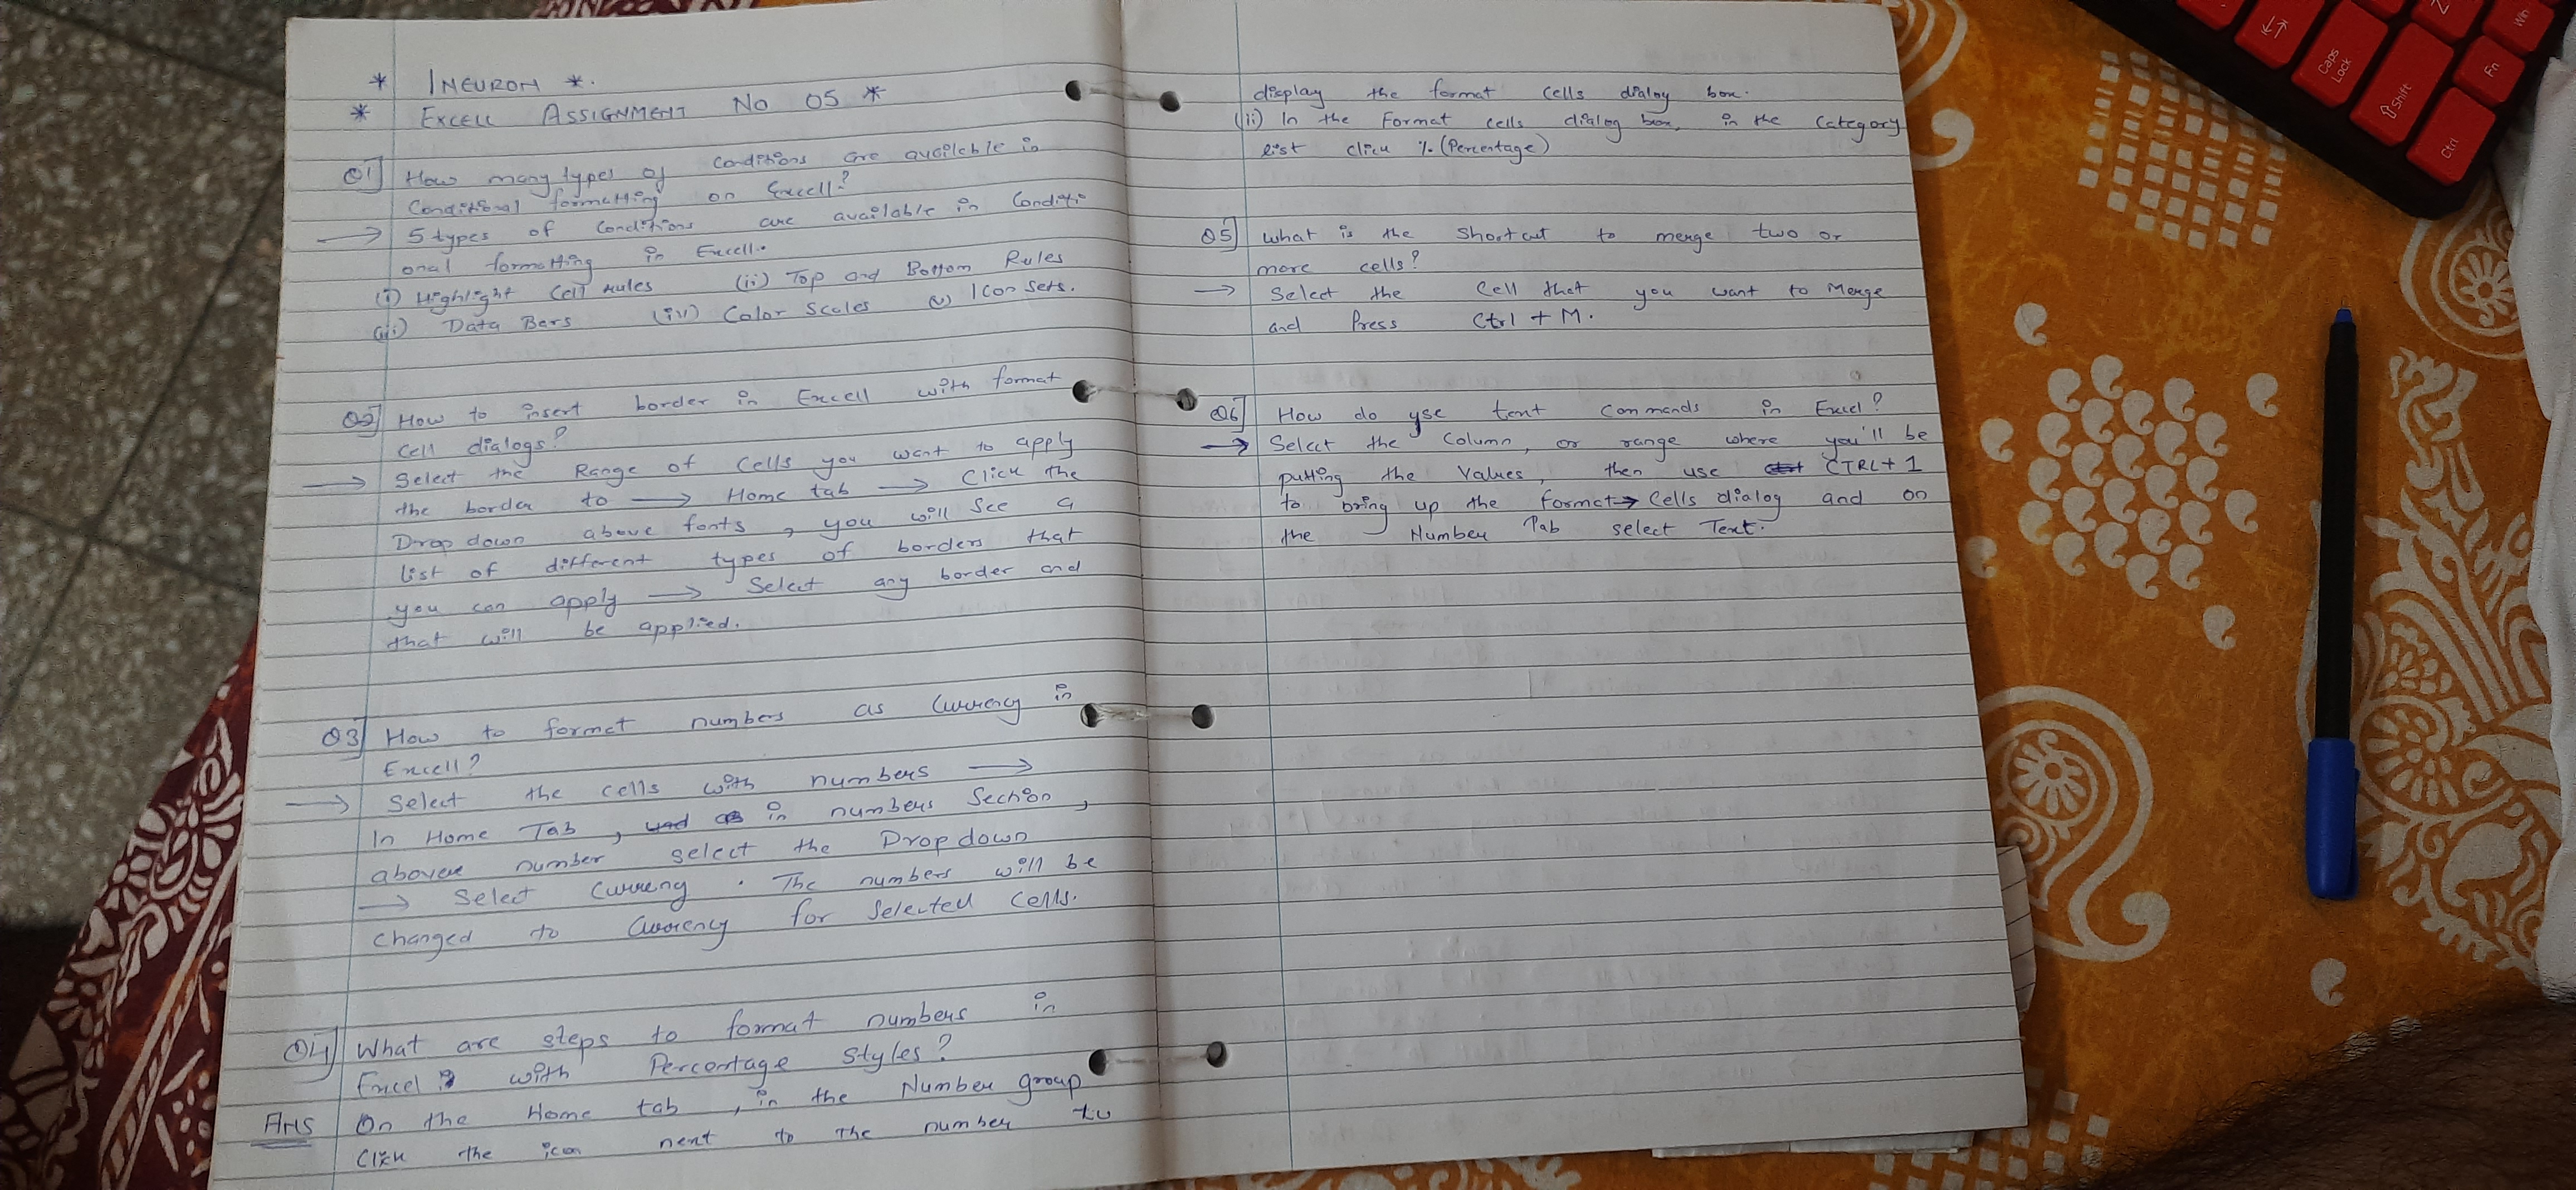 * INEURON *.
* EXCELL ASSIGNMENT No 05 *
Q1] How many types of conditions are available in
Conditional formatting on Excell?
→ 5 types of conditions are available in Conditi-
onal formatting in Excell.
(i) Highlight Cell rules (ii) Top and Bottom Rules
(iii) Data Bars (iv) Color Scales (v) Icon sets.
Q2] How to insert border in Excell with format
Cell dialogs?
→ Select the Range of Cells you want to apply
the border to → Home tab → Click the
Drop down above fonts, you will see a
list of different types of borders that
you can apply → Select any border and
that will be applied.
Q3] How to format numbers as Currency in
Excell?
→ Select the cells with numbers →
In Home Tab, in numbers Section,
above number select the Drop down
→ Select Currency. The numbers will be
changed to Currency for Selected Cells.
Q4] What are steps to format numbers in
Excel with Percentage styles?
Ans On the Home tab, in the Number group
Click the icon next to the number to
display the format cells dialog box.
(ii) In the Format cells dialog box, in the Category
list click % (Percentage)
Q5] What is the Shortcut to merge two or
more cells?
→ Select the Cell that you want to Merge
and Press Ctrl + M.
Q6] How do yse text Commands in Excel?
→ Select the Column, or range where you'll be
putting the values, then use CTRL + 1
to bring up the format → Cells dialog and on
the Number Tab select Text.
Win
Fn
Ctrl
Z
Shift
Caps Lock